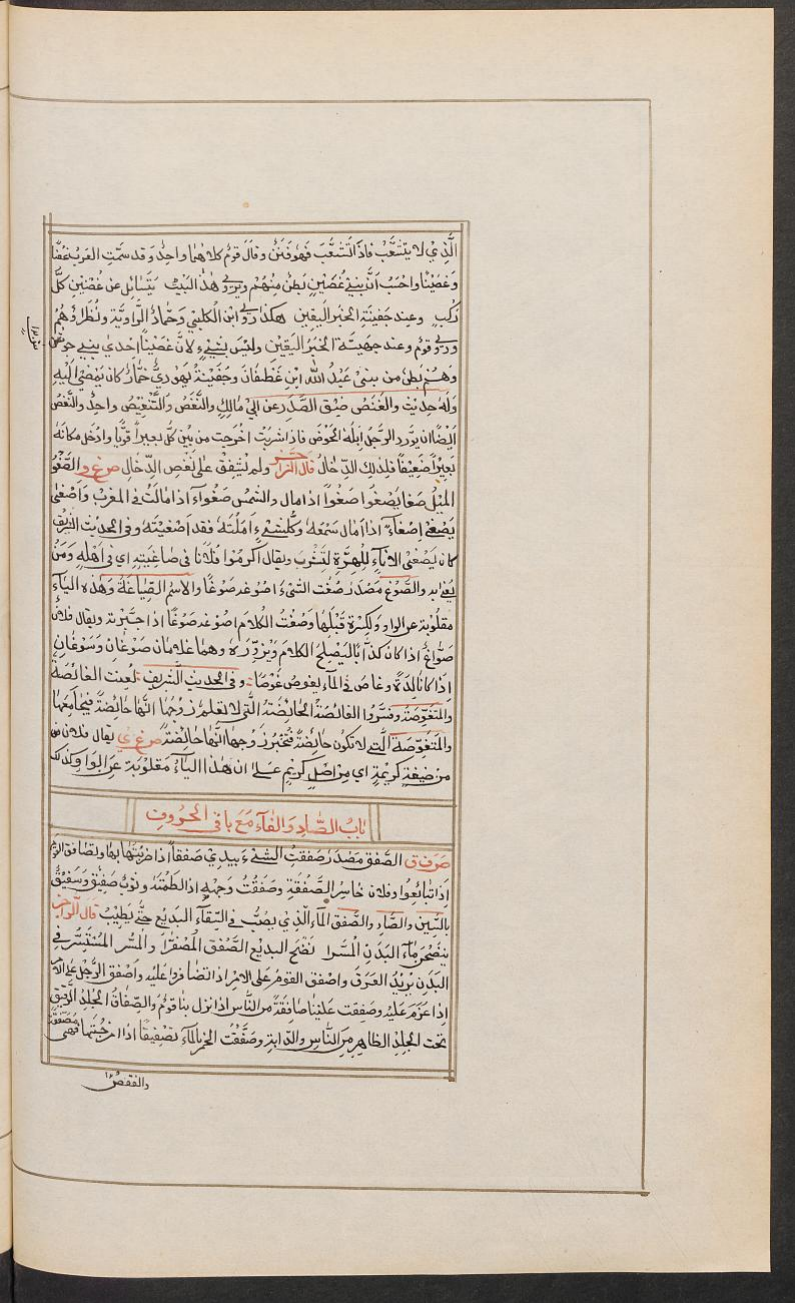 الَّذِيْ لا يتشعَّبُ فاذا تشعَّبَ فهوفَنَنٌ وقال قومٌ كلاهما واحدٌ وقد سمَّتِ العَربُ غصْنًا
وَغُصَيْنًا واحْسَبُ انَّ بنِي غُصَيْنٍ بَطنٌ منهُمْ ويروى هذا البَيْت يُسَائِل عن غُصَيْنٍ كلَّ
رَكْبٍ وعِند جفينَةِ الخبرُ اليَقين هكذا روى ابن الكلبيّ وحمّادٌ الرّاويَة ونُظراؤهُم
وروى قوم وعند جهَينَة الخبرُ اليَقين وليسَ بشيْءٍ لانَّ غُصَيْنًا احدُ بني
وهُم بطنٌ من بني عَبدُ الله ابنِ غطفانَ وجفينَةُ يهوديٌّ خمّارٌ كان يَمْضِي الَيهِ
وَلهُ حديثٌ والغَنَص ضيْق الصَّدرِ عن ابي مالكٍ والنَّغَصُ والتّنغيصُ واحدٌ والنَّغصُ
اَيضًا ان يُورد الرّجلُ ابلَهُ الحوْضَ فاذا شربَتْ اخرَجت من بَين كلّ بعيراً قويًّا وادْخَلَ مكانَهُ
بَعِيْراً ضعِيْفًا فذلك الدِّخالُ قال الرّاجز ولم يُشْفِقْ على نغَصِ الدّخالِ ص غ و الصَّغْوُ
المَيْلُ صَغا يصْغُوا صَغْوًا اذا مال والشمس صَغْواءُ اذا مالتْ في المغربِ وَاَصْغى
يُصْغي اِصغاءً اذا اَمال سمْعهُ وكلُّ شيْءٍ اَمَلْتَهُ فقد اَصْغيْتَهُ وفي الحديث الشريف
كان يُصْغي الاناءَ للهرَّةِ لِتشْرَبَ ويقال اَكرِمُوا فلانًا في صاغِيَتِهِ اي في اَهْله وَمَنْ
والصَّوغ مَصْدَر صُغْت الشيْءَ اصُوغه صَوغًا والاسْم الصِّياغَةُ وَهٰذه الياءُ
مقلُوبَة عن الواو لكسْرَة قبْلَها وَصُغْتُ الكلامَ اصُوغه صَوْغًا اذا حبَّرته ويقال فلانٌ
صَوَّاغٌ اذا كان كذّابًا يُصْلِحُ الكلامَ ويُزوِّرُهُ وهُما غلامان صَوْغانِ وَسَوْغانِ
اِذا كانا لِدَةً وغاص في الماءِ يغوصُ غَوْصًا وفي الحديثِ الشَّريفِ لُعِنت الغائصَة
والمتغَوِّصَةُ وفسَّروا الغائصَةُ الحائضَةُ الَّتي لا تعلم زوْجها انَّها حائضَةٌ فيجامعُها
والمتغَوِّصَة الّتي لا تكون حائضَةً فتخبرُ زوْجَها انَّها حائضَةٌ ص غ ي يقال فلان من
من صِيغَةٍ كريمةٍ اي من اصلٍ كريْمٍ عَلٰى ان هذا الياءُ مَقلُوبَة عن الوَاوِ وكذلك
بَابُ الصَّادِ وَالفَاءِ مَعَ باقي الحرُوف
ص ف ق الصَّفق مَصْدَر صَفقتُ الشّيْءَ بيدي صَفقًا اذا ضربْتَها بها وتصافق القوْ
اِذا تبايَعُوا وفلان خاسِرُ الصَّفقَةِ وصَفَقْتُ وجْهَهُ اذا لطَمْتَه وثوْبٌ صَفِيْق وَسَفيْقٌ
بالسِّين والصَّادِ والصَّفق الماءُ الّذي يصُبّ في السّقاءِ البديْع حتّى يَطِيْبُ قال الرّاجز
ينْضحْن ماءَ البَدَنِ المُسَرا نضْحَ البديْع الصَّفَق المُصْفَرّا والمُسَرّ المُستَسرّ في
البَدنِ يُرِيْدُ العَرَقَ واصْفق القوْمُ على الامْرِ اذا تضافرُوا عليْه واَصْفق الرَّجُلُ على الامْرِ
اِذا عَزمَ عَليْه وصَفقت عَليْنا صافقَةٌ من النّاسِ اذا نزل بنا قومٌ والصِّفاقُ الجِلْدُ الرَّقيْق
تَحْت الجلدِ الظاهِرِ مِن النّاسِ والدّابةِ وصَفَّقْتُ الخمرَ بالماءِ تصْفيْقًا اذا مزجْتَها فهي مُصَفَّقَة